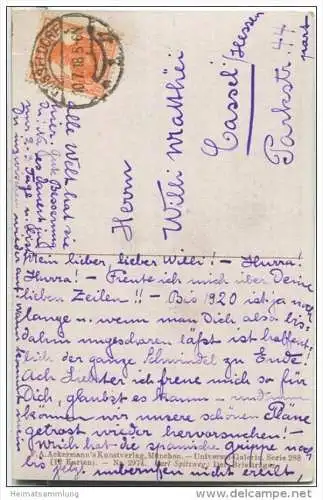 DÜSSELDORF
10.7.18.5-6N
Herrn
Willi Matthäi
Cassel/Hessen
Parkstr. 44
part.
alle Welt hat sie
hier. Gute Besserung
Mein lieber, lieber Willi! – Hurra!
Hurra! – Freute ich mich über Deine
lieben Zeilen!! – Bis 1920 ist ja noch
lange u. wenn man Dich also bis
dahin ungeschoren läßt ist hoffent-
lich der ganze Schwindel zu Ende!
Ach Liebster ich freue mich so für
Dich, glaubst es kaum – und nun
können wir unsere schönen Pläne
getrost wieder hervorsuchen! –
Mich hat die spanische Grippe noch
bis jetzt unberufen nicht ereilt,
F. A. Ackermann's Kunstverlag, München. – Universal-Galerie, Serie 288
(12 Karten). – No. 2974. Carl Spitzweg: Der Briefbote
Heimatsammlung
www.delcampe.net